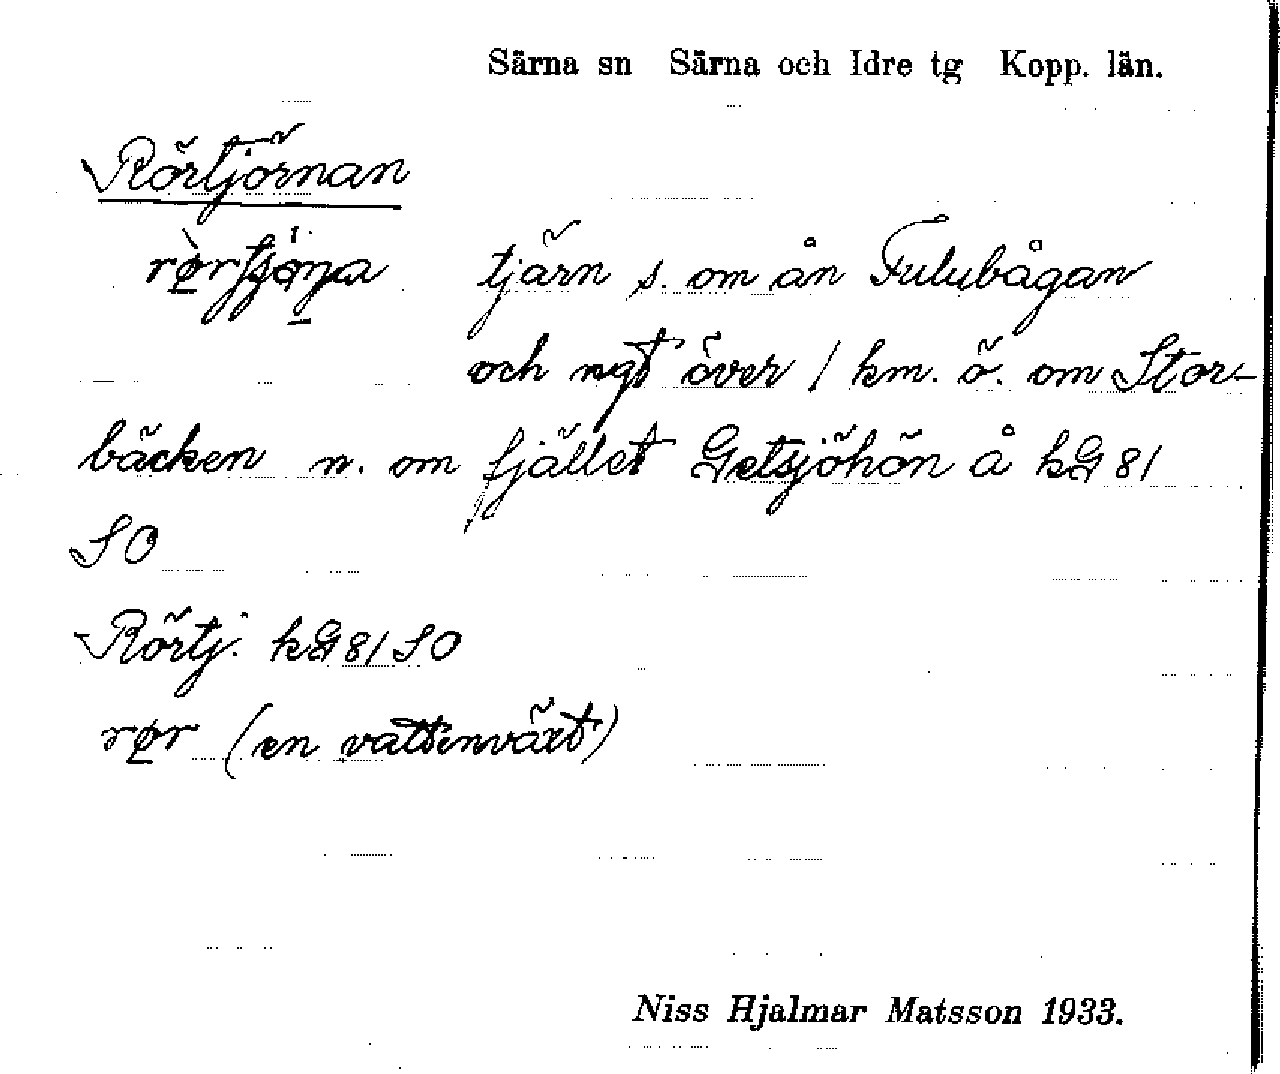 Särna sn Särna och Idre tg Kopp. län.
Rörtjörnan
tjärn s. om ån Fulubågan
och ngt över 1 km. ö. om Stor-
bäcken n. om fjället Getsjöhön å kG 81
SO
Rörtj. kG 81 SO
rør (en vattenväxt)
Niss Hjalmar Matsson 1933.